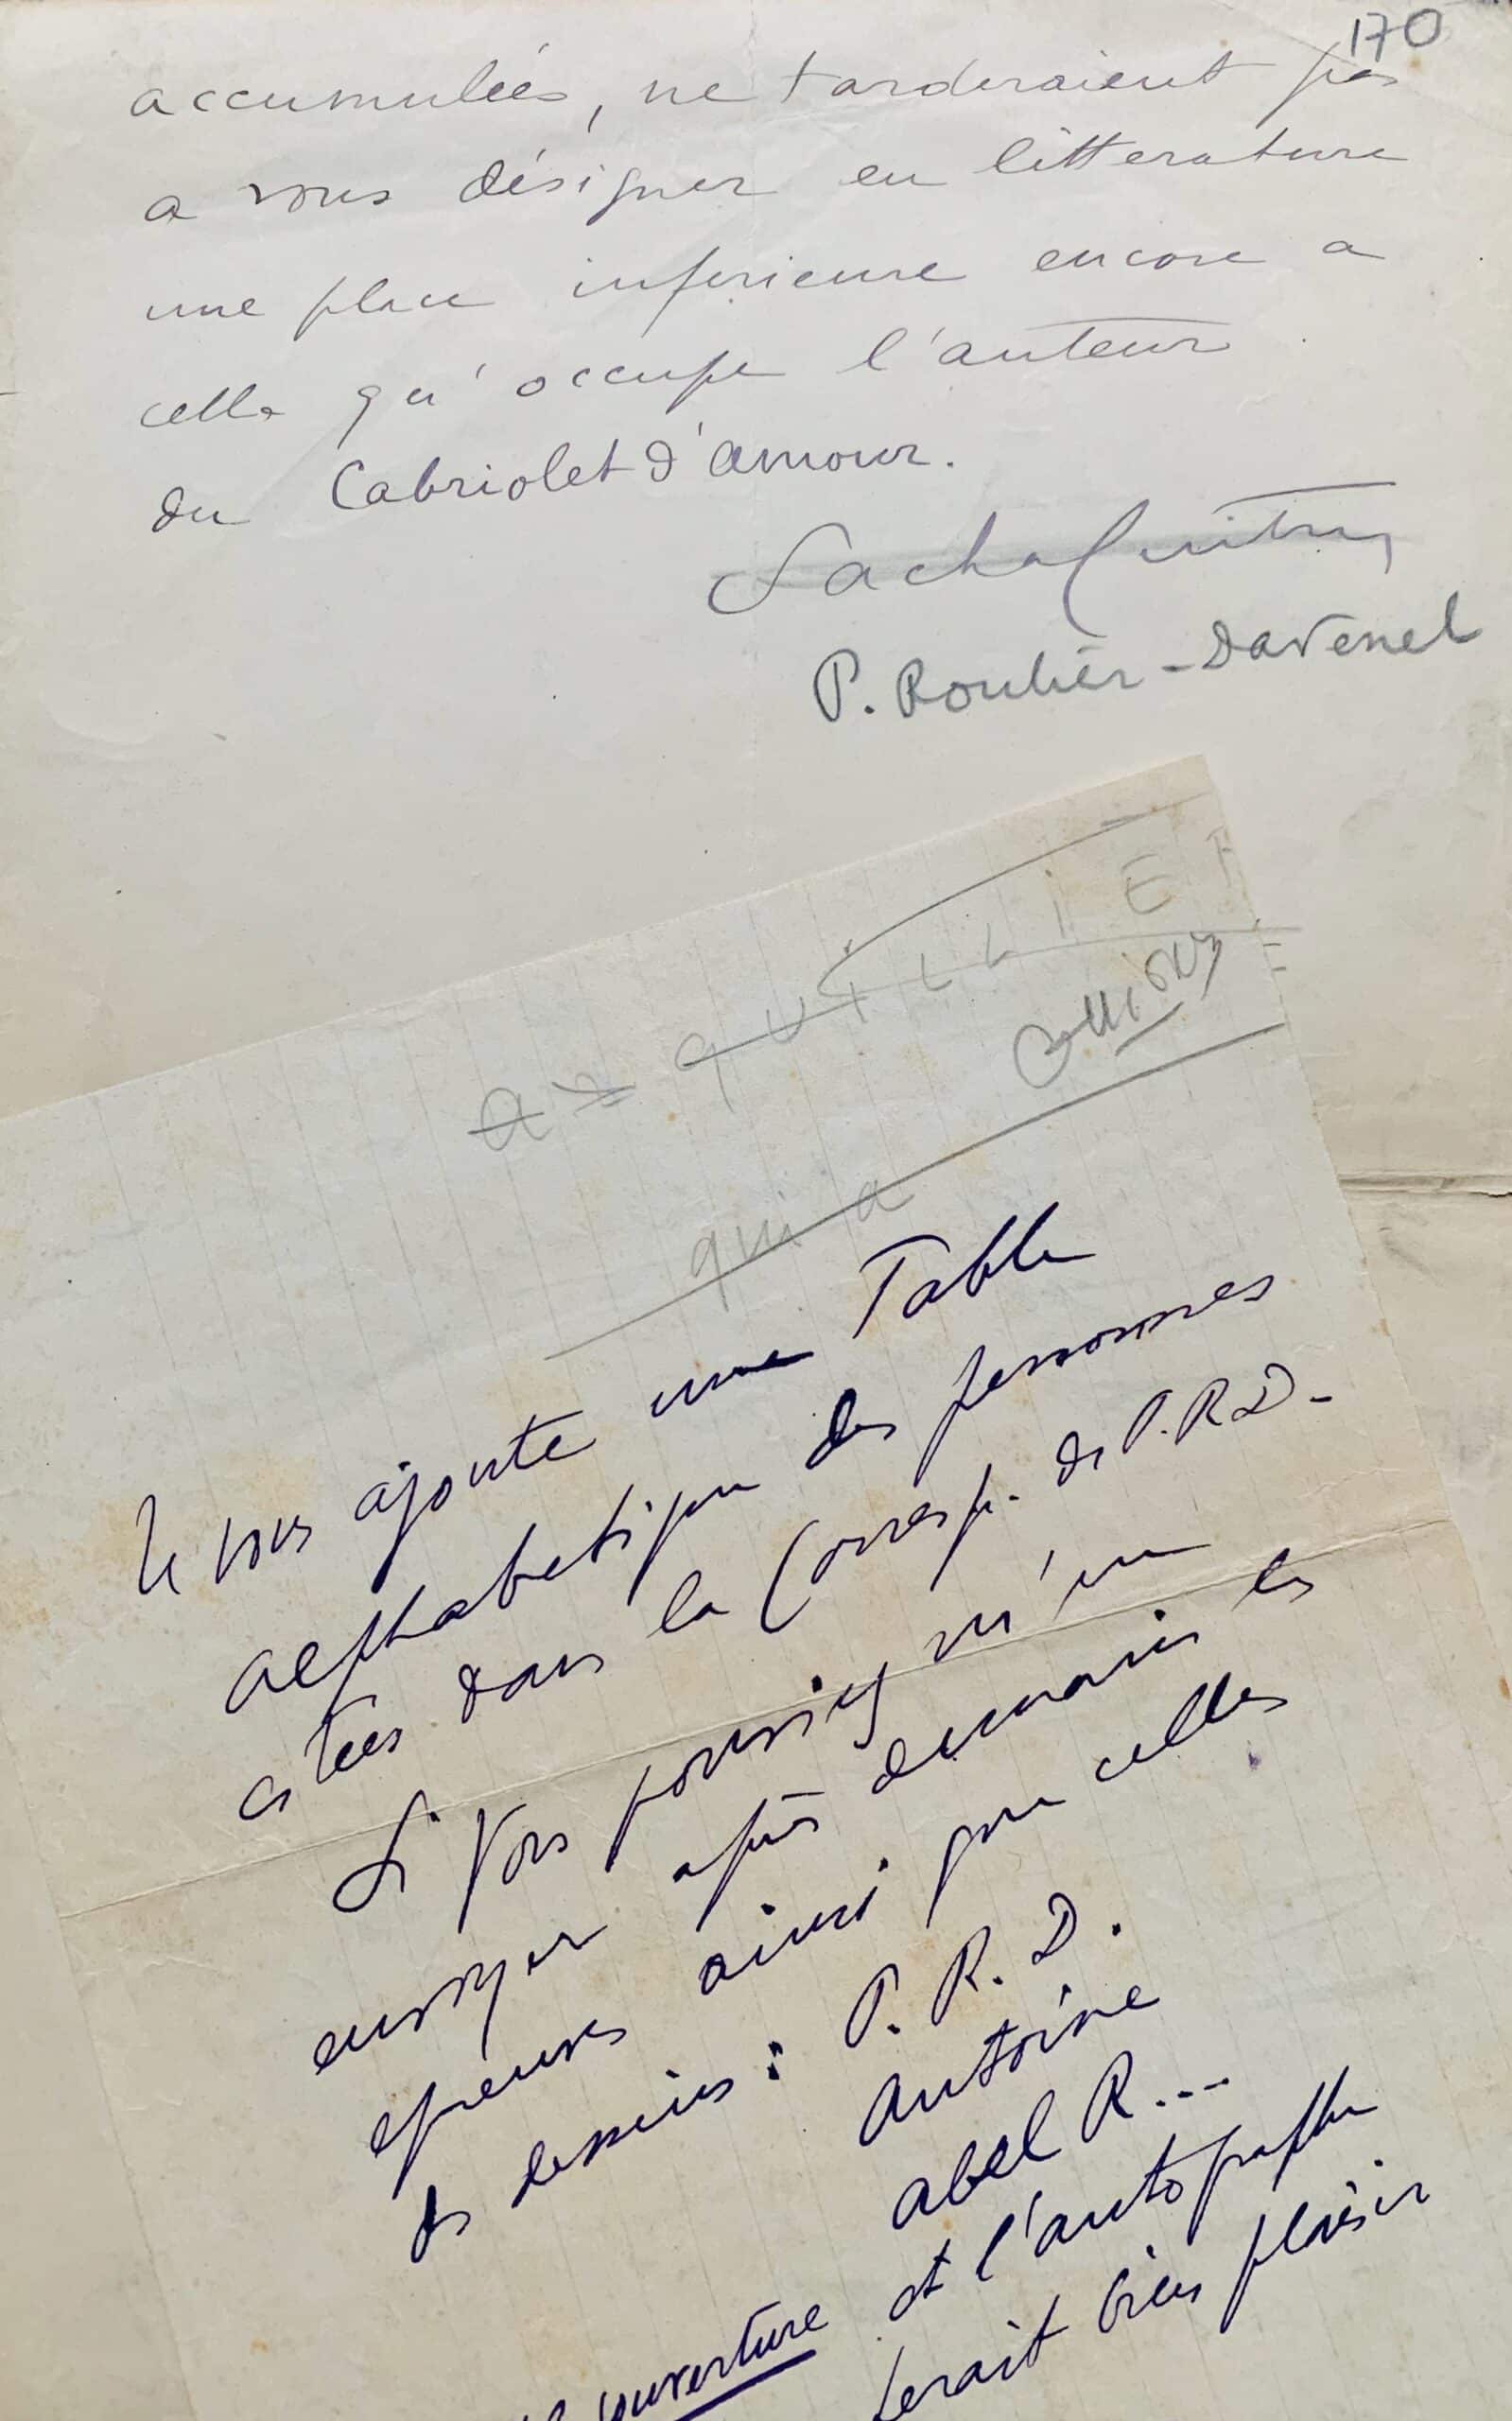 170
accumulées, ne tarderaient pas
a vous désigner en litterature
une place inferieure encore a
celle qu'occupe l'auteur
du Cabriolet d'amour.
Sacha Guitry
P. Roulier-Davenel
QUILLIE
qui a
Je vous ajoute une Table
alphabetique des personnes
citées dans la Corresp. de P.R.D-
Si vous pouviez m'en
envoyer après demain les
epreuves ainsi que celles
des dessins : P. R. D.
Antoine
Abel R...
couverture et l'autographe
ferait bien plaisir